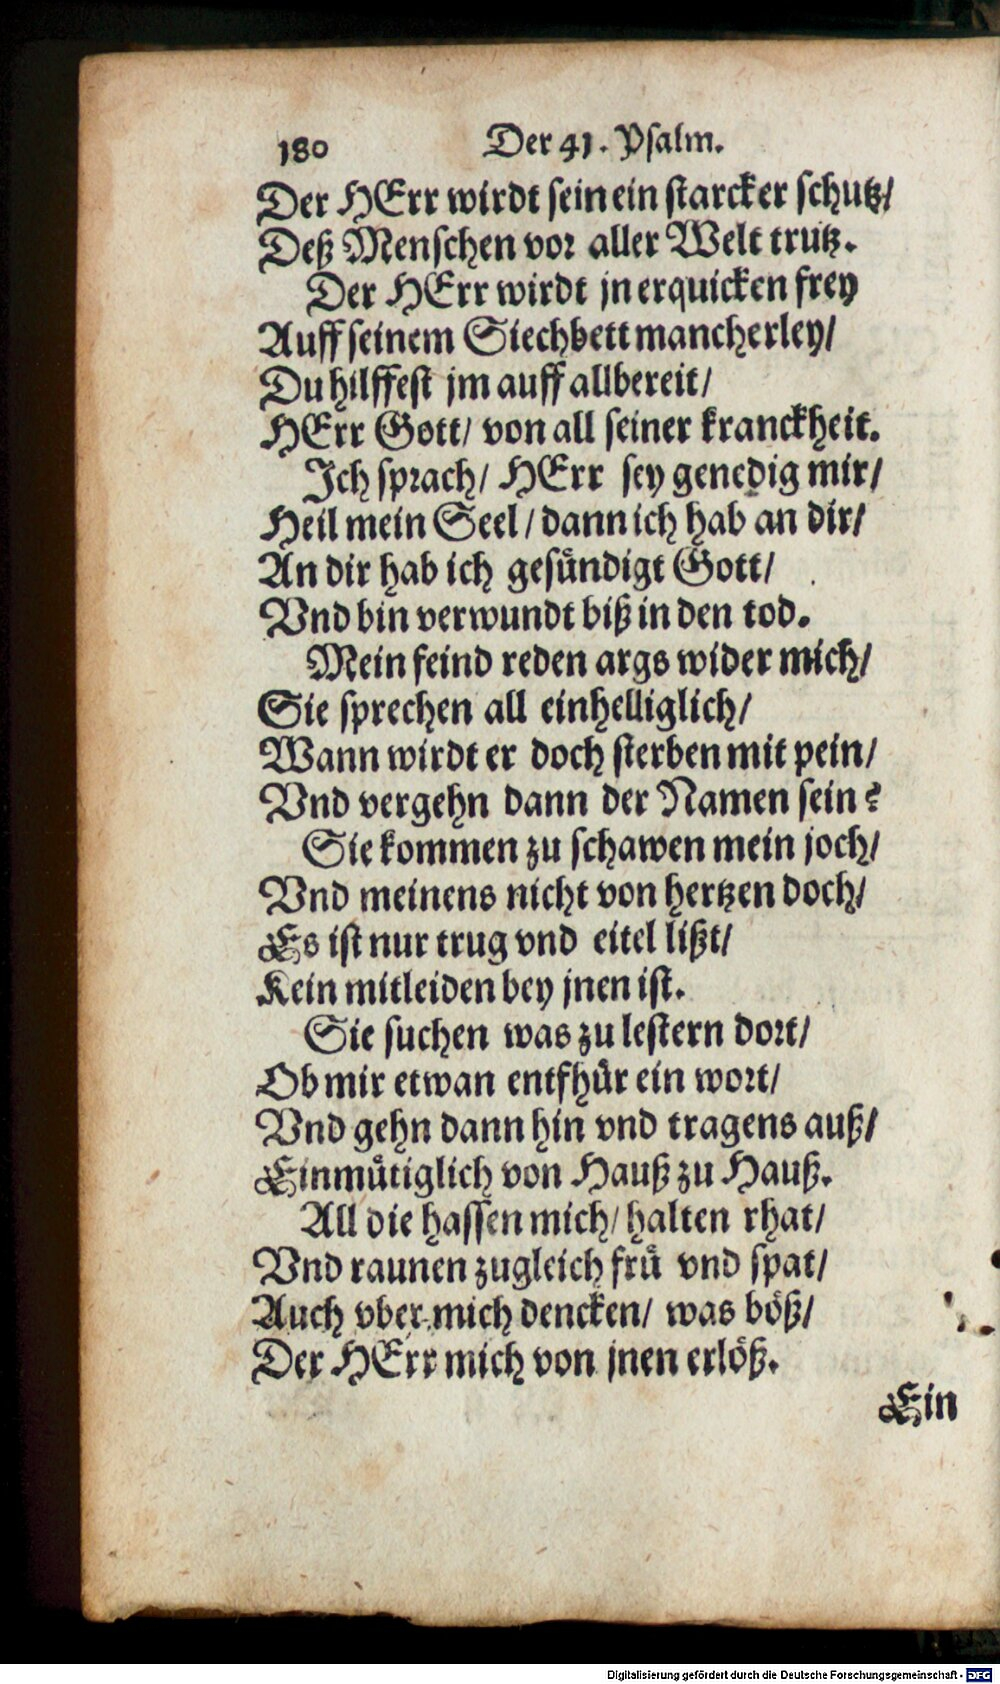 180 Der 41. Psalm.
Der HErr wirdt sein ein starcker schutz/
Deß Menschen vor aller Welt trutz.
Der HErr wirdt jn erquicken frey
Auff seinem Siechbett mancherley/
Du hilffest jm auff allbereit/
HErr Gott/ von all seiner kranckheit.
Ich sprach/ HErr sey genedig mir/
Heil mein Seel/ dann ich hab an dir/
An dir hab ich gesündigt Gott/
Vnd bin verwundt biß in den tod.
Mein feind reden args wider mich/
Sie sprechen all einhelliglich/
Wann wirdt er doch sterben mit pein/
Vnd vergehn dann der Namen sein?
Sie kommen zu schawen mein joch/
Vnd meinens nicht von hertzen doch/
Es ist nur trug vnd eitel lißt/
Kein mitleiden bey jnen ist.
Sie suchen was zu lestern dort/
Ob mir etwan entfhür ein wort/
Vnd gehn dann hin vnd tragens auß/
Einmütiglich von Hauß zu Hauß.
All die hassen mich/ halten rhat/
Vnd raunen zugleich frü vnd spat/
Auch vber mich dencken/ was böß/
Der HErr mich von jnen erlöß.
Ein
Digitalisierung gefördert durch die Deutsche Forschungsgemeinschaft - DFG